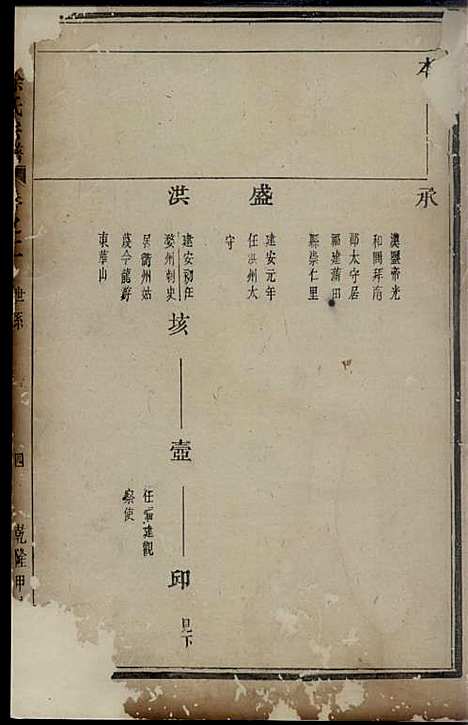 本
承
漢靈帝光
和間拜清
郡太守居
福建莆田
縣崇仁里
盛
建安元年
任洪州太
守
洪
建安初任
婺州刺史
居衢州姑
蔑今龍游
東華山
垓
壺
任福建觀
察使
邱
見下
徐氏宗譜
卷之二
世系
四
乾隆甲